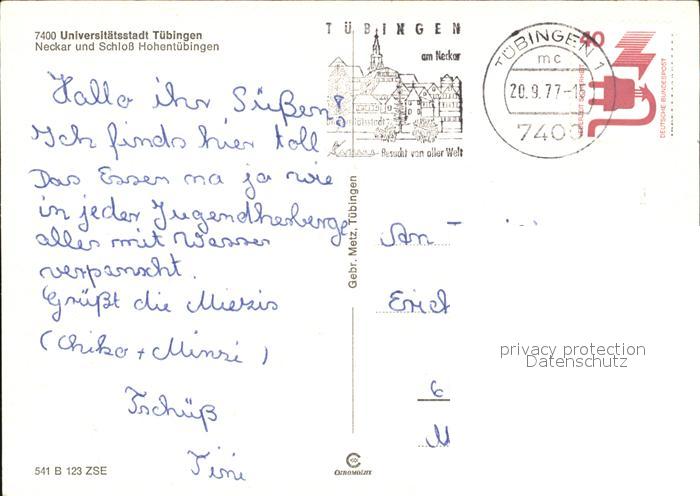 7400 Universitätsstadt Tübingen
Neckar und Schloß Hohentübingen
TÜBINGEN
am Neckar
Besucht von aller Welt
TÜBINGEN 1
mc
20.9.77-15
7400
40
DEUTSCHE BUNDESPOST
Hallo ihr Süßen!
Ich finds hier toll
Das Essen na ja wie
in jeder Jugendherberge
alles mit Wasser
verpanscht.
Grüßt die Miezis
(Chiko + Minzi)
Tschüß
Tini
Gebr. Metz, Tübingen
An
Erich
6
M
privacy protection
Datenschutz
541 B 123 ZSE
CHROMOLUX